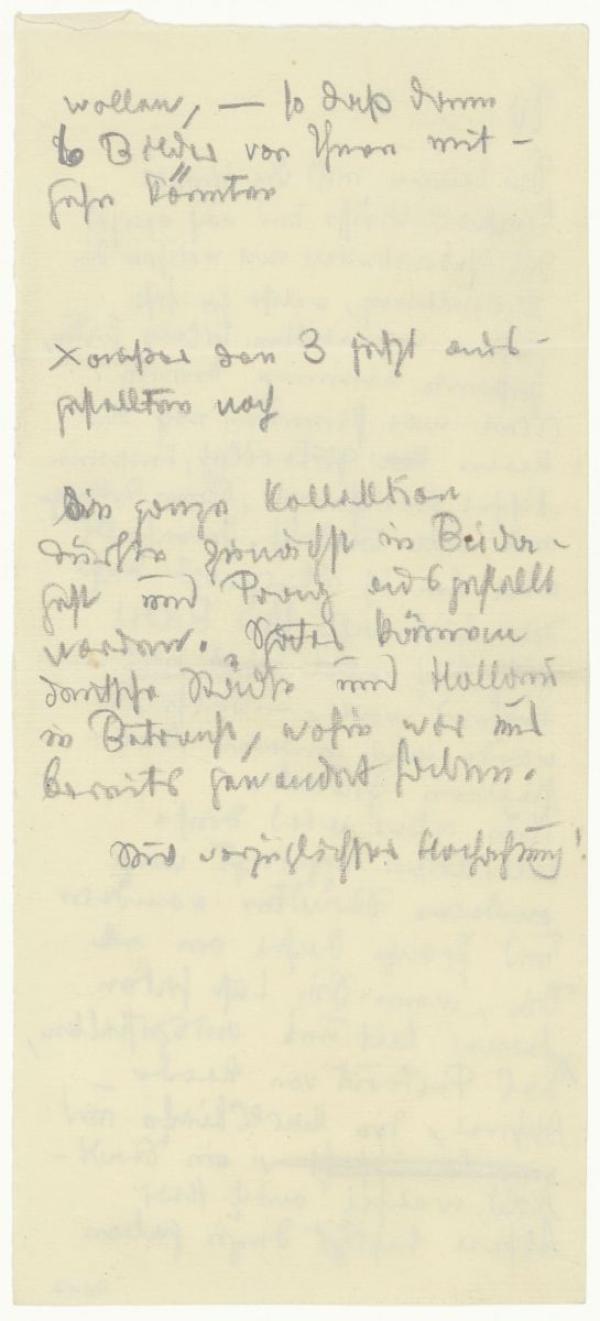 wollen, — so daß dann
6 Bilder von Ihnen mit-
gehn könnten
× außer den 3 jetzt aus-
gestellten noch
Die ganze Kollektion
dürfte zunächst in Buda-
pest und Prag ausgestellt
werden. Später können
deutsche Städte und Holland
in Betracht, wohin wir uns
bereits gewendet haben.
Mit vorzüglichster Hochachtung!